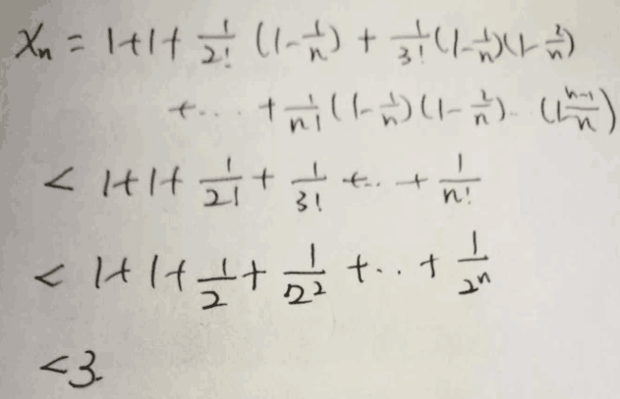 Xn = 1+1+ 1/2! (1-1/n) + 1/3! (1-1/n)(1-2/n)
+... + 1/n! (1-1/n)(1-2/n)...(1-(n-1)/n)
< 1+1+ 1/2! + 1/3! +...+ 1/n!
< 1+1+ 1/2 + 1/2² +...+ 1/2ⁿ
<3.